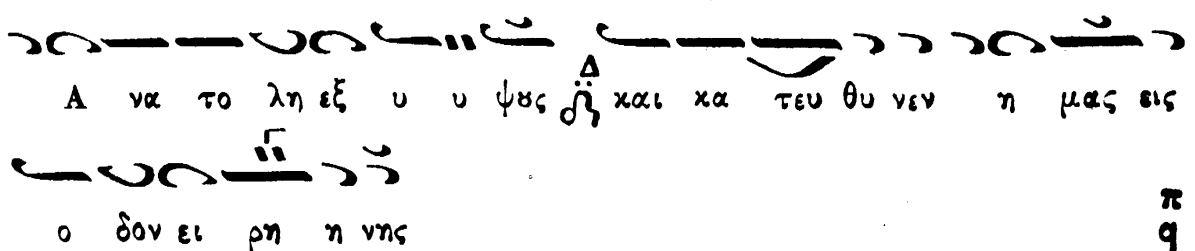 Α να το λη εξ υ υ ψȣς Δ και κα τευ θυ νεν η μας εις
Γ
ο δον ει ρη η νης π q